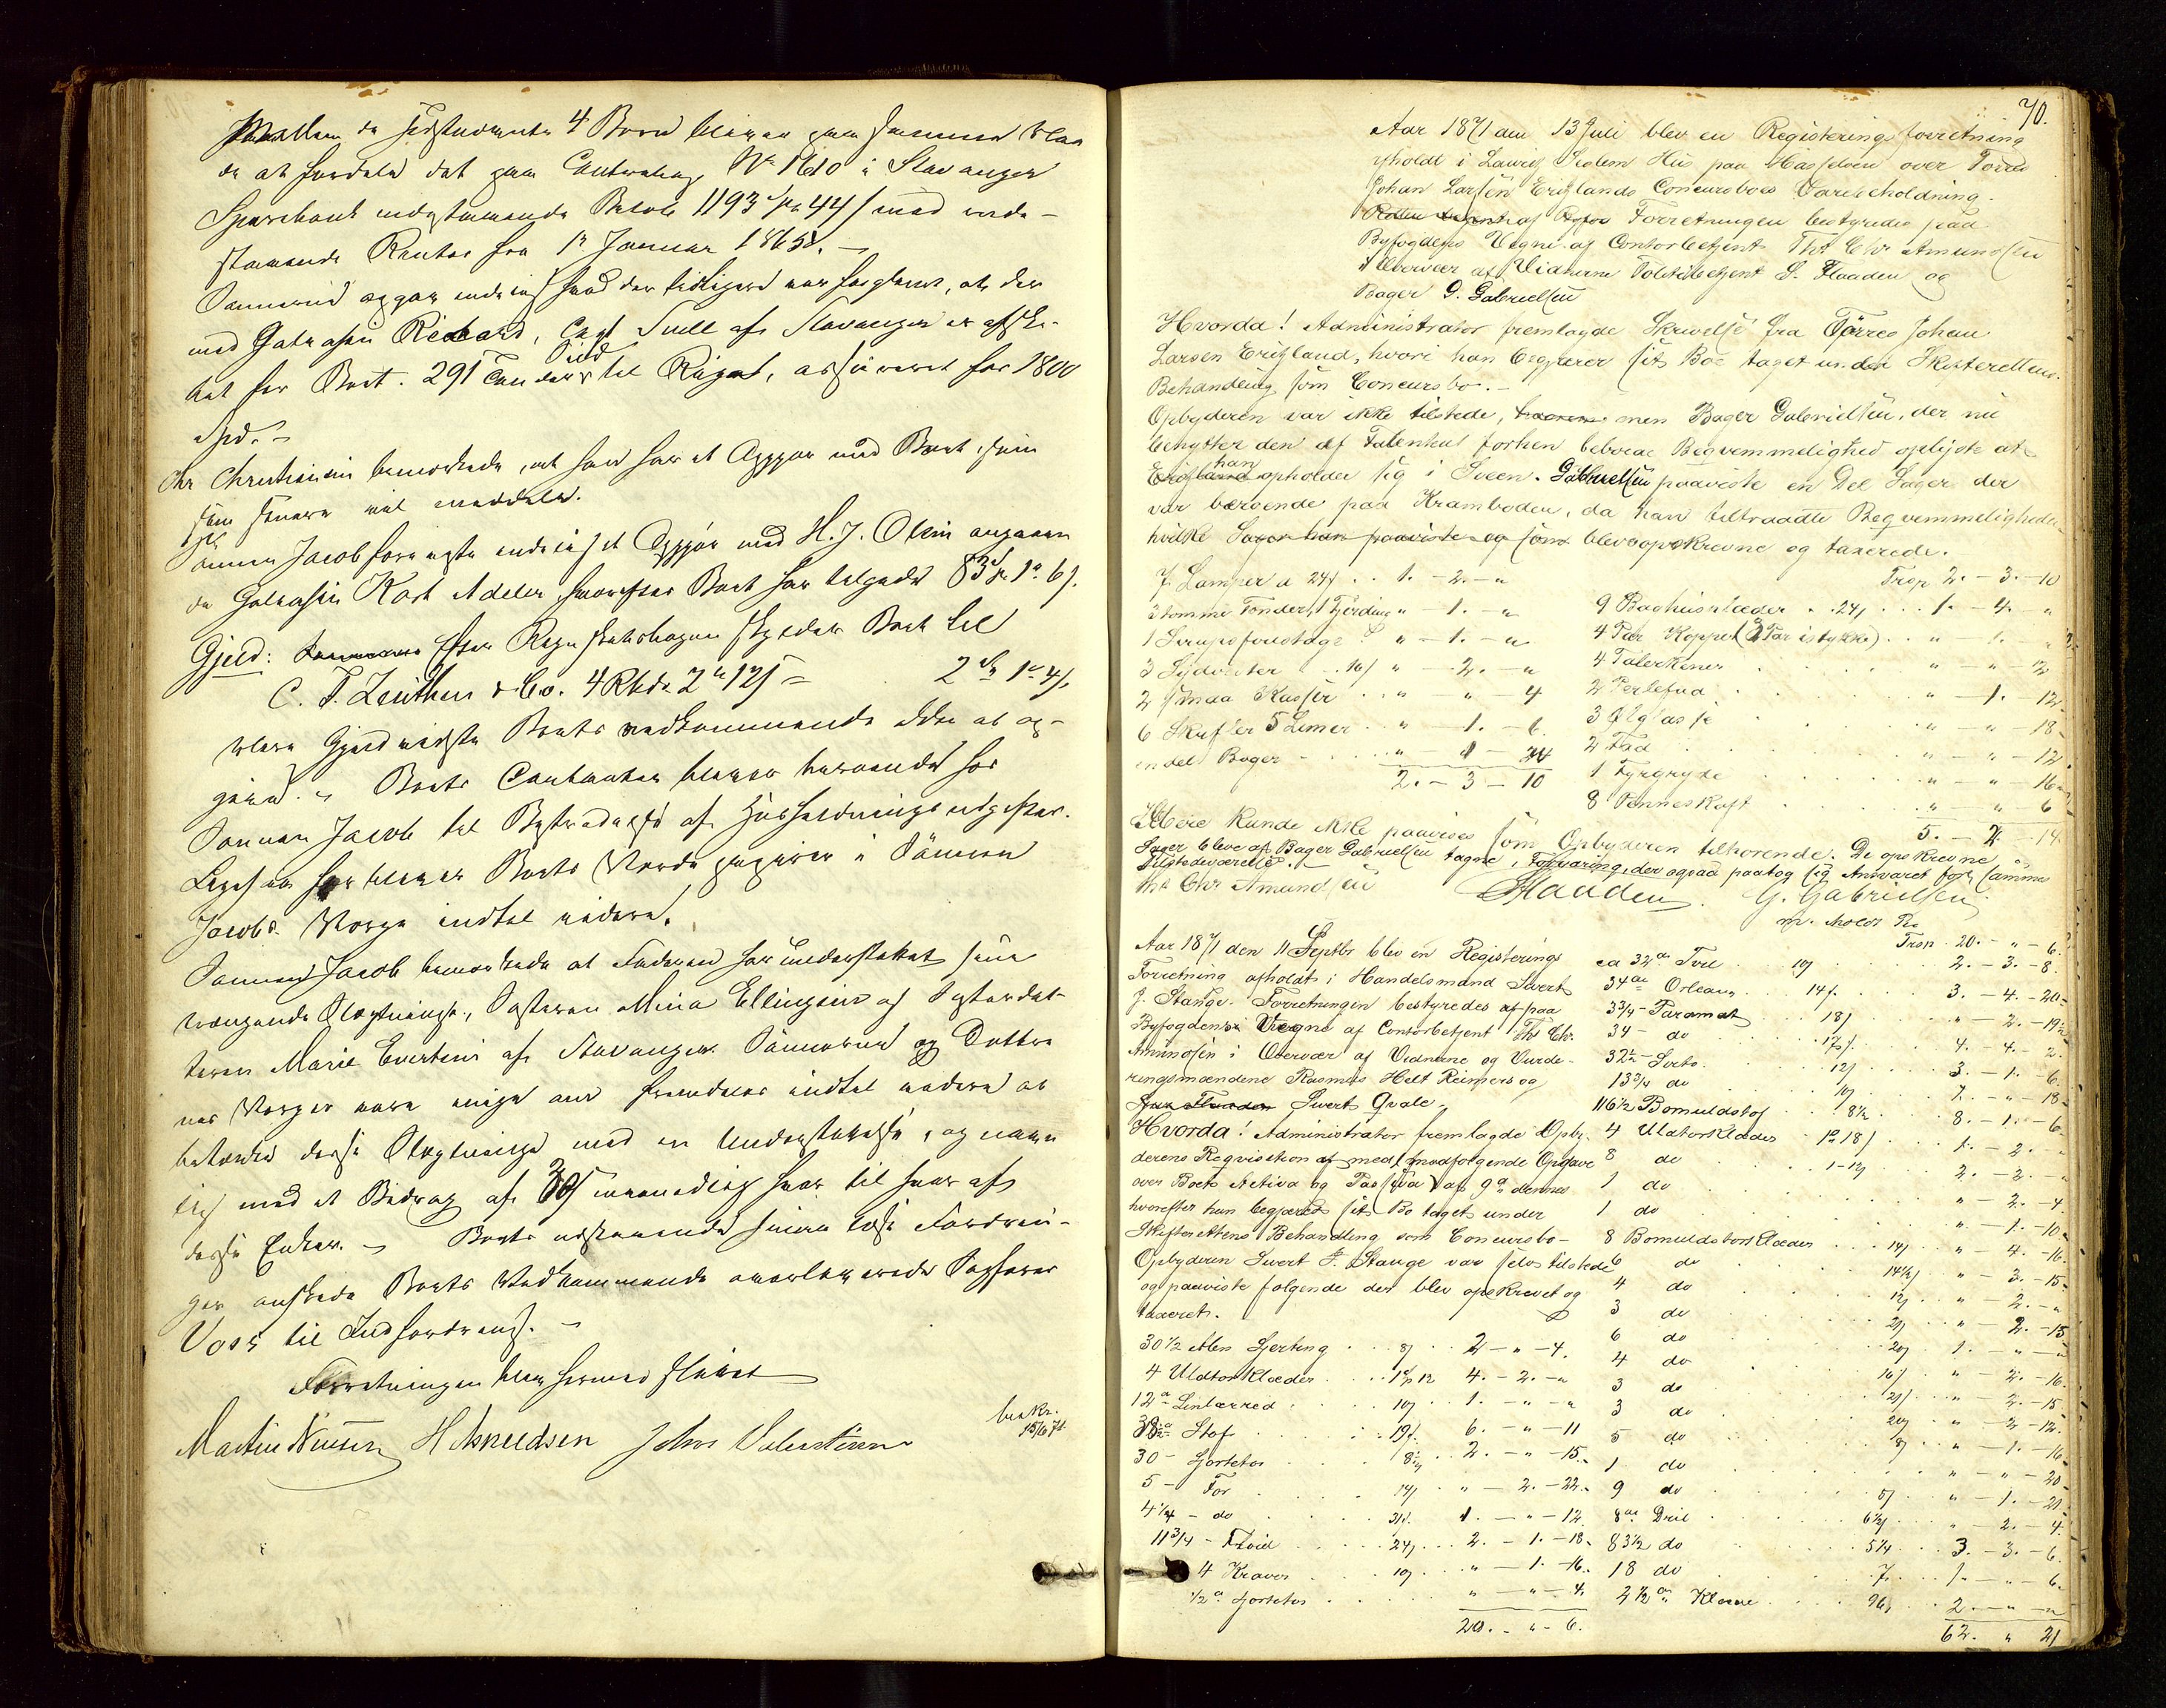 Mellem de sidstnævnte 4 Børn bliver som Formue blev
de at fordele det paa Contrabog No 1610 i Stavanger
Sparebank indestaaende Beløb 1193 Spd 44 s med ved-
staaende Renter fra 1r Januar 1868. –
Sønnerne opgav endvidere hvad der tidligere var forglemt, at der
med Galeasen Richard, Capt Snell af Stavanger er afski-
bet for Boet 291 Tønder Sild til Riga, assureret for 1800
Spd. –
Hr Christensen bemærkede, at han har et Opgjør med Boet, som
han senere vil meddele.
Sønnen Jacob foreviste endvidere et Opgjør med H. J. Olsen angaaende
Galeasen Kort Adeler, hvorefter Boet har tilgode 83 Spd 1 # 6 s.
Gjeld: Efter Regnskabsbogen skylder Boet til
C. F. Zeuthen & Co. 4 Rbd. 2 # 12 s = 2 Spd 1 # 4 s.
Mere Gjeld vidste Boets Vedkommende ikke at op-
give. – Boets Contanter bleve beroende hos
Sønnen Jacob til Bestridelse af Huusholdningsudgifter.
Ligesaa forbliver Boets Værdipapirer i Sønnen
Jacobs Værge indtil videre.
Sønnen Jacob bemærkede at Faderen har understøttet sine
trængende Slægtninge, Søsteren Mina Ellingsen og Søsterdat-
teren Marie Evertsen af Stavanger. Sønnerne og Dottre-
nes Værger vare enige om fremdeles indtil videre at
betænke disse Slægtninge med en Understøttelse, og navn-
lig med et Bidrag af 30 s maanedlig hver til hver af
disse Enker. – Boets udestaaende smaa løse Fordrin-
ger ønskede Boets Vedkommende overleverede Sagfører
Voss til Indfordring. –
Forretningen blev hermed sluttet
Martin Nilsen H Asneldsen John Valentinsen
beskr.
15/6 71
70.
Aar 1871 den 13 Juli blev en Registering forretning
afholdt i Lauritz Hus paa Hasseløen over Torres
Johan Larsen Erigslands Concursboes Varebeholdning.
Forretningen bestyredes paa
Byfogdens Vegne af Contorbetjent Th Chr Amundsen
i Overvær af Vidnerne Politibetjent S. Flaaden og
Bager G. Gabrielsen
Hvorda! Administrator fremlagde Skrivelse fra Törres Johan
Larsen Erigsland, hvori han begjærer sit Bo taget under Skifterettens
Behandling som Concursbo. –
Opbyderen var ikke tilstede, men Bager Gabrielsen, der nu
benytter den af Fallenten forhen beboede Beqvemmelighed oplyste at
han opholder sig i Sveen. Gabrielsen paaviste en Del Sager der
var beroende paa Kramboden, da han tiltraadte Beqvemmeligheden
hvilke Sager han paaviste og som bleve opskrevne og taxerede.
7 Lamper a 24 s . . 1. – 2. – "
3 tomme Tønder, 1 Fjerding " – 1. – "
1 Sirupsfoustage " – 1. – "
3 Sydvester . . 16 s " – 2. – "
2 smaa Kasser . . " – " – 4
6 Skufler 5 Limer . . " – 1. – 6.
en del Bøger . . . " – " – 24
2. – 3 – 10
Trsp 2. – 3. – 10
9 Baghusplader . . 24 s . . 1. – 4. – "
4 Par Kopper (2 Par istykke) . . " – 1. – "
4 Talerkener " – " – 12
2 Perlefad " – 1. – 12
3 Ølglasse " – " – 18
2 Fad " – " – 12
1 Fyrgryde " – " – 16
8 Penneskaft " – " – 6
5. – 2. – 14
Mere kunde ikke paavises som Opbyderen tilhørende. De opskrevne
Sager bleve af Bager Gabrielsen tagne i Forvaring, der ogsaa paatog sig Ansvaret for Samme
Tilstedeværelse. –
Th Chr Amundsen SFlaaden G. Gabrielsen
m. p. Pen
Aar 1871 den 11 Septbr blev en Registerings
Forretning afholdt i Handelsmand Sivert
J. Stange. Forretningen bestyredes af paa
Byfogdens Vegne af Contorbetjent Th Chr.
Amundsen i Overvær af Vidnerne og Vurde-
ringsmændene Rasmus Helt Reimers og
Sivert Qvale
Hvorda! Administrator fremlagde Opby-
derens Reqvisition med medfølgende Opgave
over Boets Activa og Passiva af 9de dennes
hvorefter han begjærede sit Bo taget under
Skifterettens Behandling som Concursbo –
Opbyderen Sivert J. Stange var selv tilstede
og paaviste følgende der blev opskrevet og
taxeret.
30 1/2 Alen Sjerting . . . 8 s . . 2 – " – 4.
4 Uldtørklæder . . . 1 # 12 4. – 2. – "
12 a Linlærred . . . 10 s . . 1. – " – "
Stof . . . 19 s. 6. – " – 11
30 – Skjortetøi . . . 8 1/2 s . . 2. – " – 15.
5 – For . . . 14 s . " – 2. – 22.
4 1/4 – do . . . 31 s. 1. – " – 12
11 3/4 – Tvid . . . 24 s . . 2. – 1. – 18.
4 Kraver . . . 10 s . . " – 1. – 16.
1/2 a Skjortetøi . . . " – " – 4.
20. – " – 6.
Trsp . 20. – " – 6.
ca 32 a Tvil . 10 s . . 2. – 3. – 8.
34 a Orlean . . 14 s . . 3. – 4. – 20.
3 3/4 – Paramat . . 18 s . . " – 2. – 19 1/2
34 – do . . 17 s . . 4. – 4. – 2.
32 1/2 – Sorts . . 12 s . . 3. – 1. – 6.
13 3/4 do . . 10 s . . 1. – " – 18.
116 1/2 Bomuldstoi . . 8 1/2 . . 8. – 1. – 6.
4 Uldtorklæder . 1 # 18 s . . 1. – 2. – "
8 do . . 1–12 s . . 2. – 2. – "
1 do . . " – 2. – 4.
1 do . . " – 1. – 10.
8 Bomuldstorklæder . . 14 s . . " – 4. – 16.
6 do . . 14 1/2 s " – 3. – 15.
4 do . . 12 s . . " – 2. – "
3 do . . 21 s . . " – 2. – 15
6 do . . 20 s . . 1. – " – "
4 do . . 16 s . . " – 2. – 16.
3 do . . 21 s . . " – 2. – 15
3 do . . 20 s . . " – 2 – 12.
5 do . . 8 s . . " – 1. – 16
1 do . . " – " – 20.
9 do . . 5 s . . " – 1. – 21.
8 a Dril . . 6 1/2 s . . " – 2. – 4.
83 1/2 do . . 5 1/4 . . 3. – 3. – 6.
18 do . . 7. . . 1. – " – 6.
2 1/2 a Klæde . . . 96 s . . 2. – " – "
62. " 21